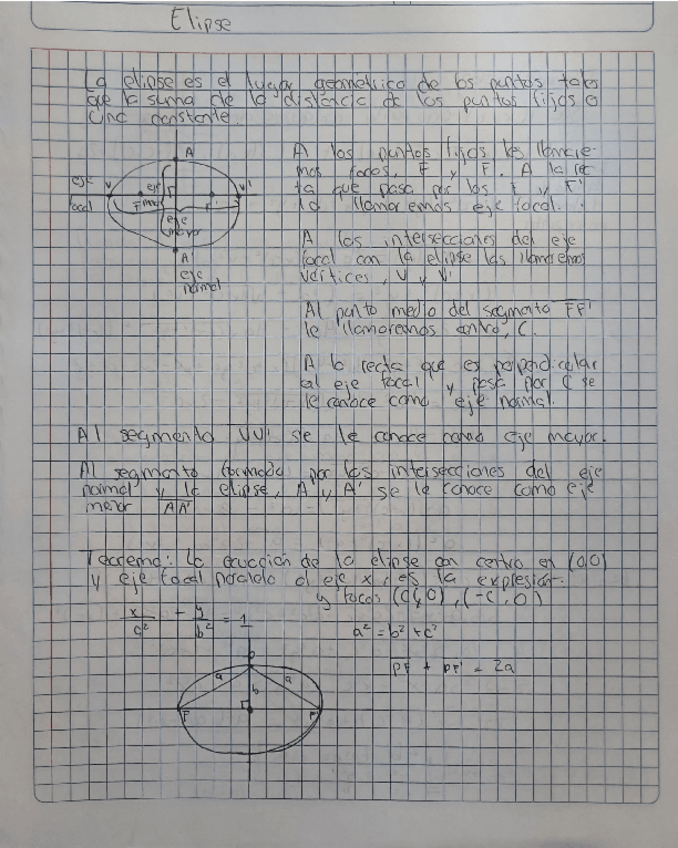 Elipse
La elipse es el lugar geométrico de los puntos tales
que la suma de la distancia de los puntos fijos o
una constante.
A los puntos fijos les llamare-
mos focos, F y F'. A la rec
ta que pasa por los F y F'
lo llamaremos eje focal.
A las intersecciones del eje
focal con la elipse las llamaremos
vértices, V y V'
Al punto medio del segmento FF'
le llamaremos centro, C.
A la recta que es perpendicular
al eje focal y pasa por C se
le conoce como eje normal.
A
eje
focal
V
V'
eje
F
F'
eje
mayor
A'
eje
normal
Al segmento VV' se le conoce como eje mayor.
Al segmento formado por las intersecciones del eje
normal y la elipse, A y A' se le conoce como eje
menor AA'
Teorema: La ecuación de la elipse con centro en (0,0)
y eje focal paralelo al eje x, es la expresión.
y focos (c,0), (-c,0)
x/a² - y/b² = 1
a² = b² + c²
PF + PF' = 2a
P
a
a
b
F
F'